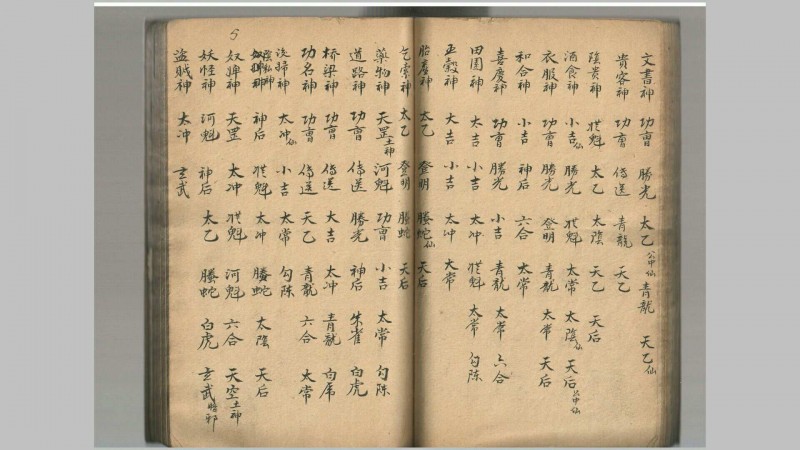 文書神 功曹 勝光 太乙 青龍 天乙
貴客神 功曹 傳送 青龍 天乙
陰貴神 從魁 太乙 太陰 天乙 天后
酒食神 小吉 勝光 從魁 太常 太陰 天后
衣服神 功曹 勝光 登明 青龍 太常 天后
和合神 小吉 神后 六合 太常
喜慶神 功曹 勝光 小吉 青龍 太常 六合
田園神 太吉 小吉 太冲 從魁 太常 勾陈
五穀神 大吉 小吉 太冲 太常
胎產神 太乙 登明 螣蛇 天后
乞索神 太乙 登明 螣蛇 天后
藥物神 天罡土神 河魁 功曹 小吉 太常 勾陈
道路神 功曹 傳送 勝光 神后 朱雀 白虎
桥梁神 功曹 傳送 大吉 太冲 青龍 白虎
功名神 功曹 傳送 天乙 青龍 六合 太常
洒掃神 太冲 小吉 太常 勾陈
陰私神 神后 從魁 太冲 螣蛇 太陰 天后
奴婢神 天罡 太冲 從魁 河魁 六合 天空土神
妖怪神 河魁 神后 太乙 螣蛇 白虎 玄武
盜賊神 太冲 玄武
5